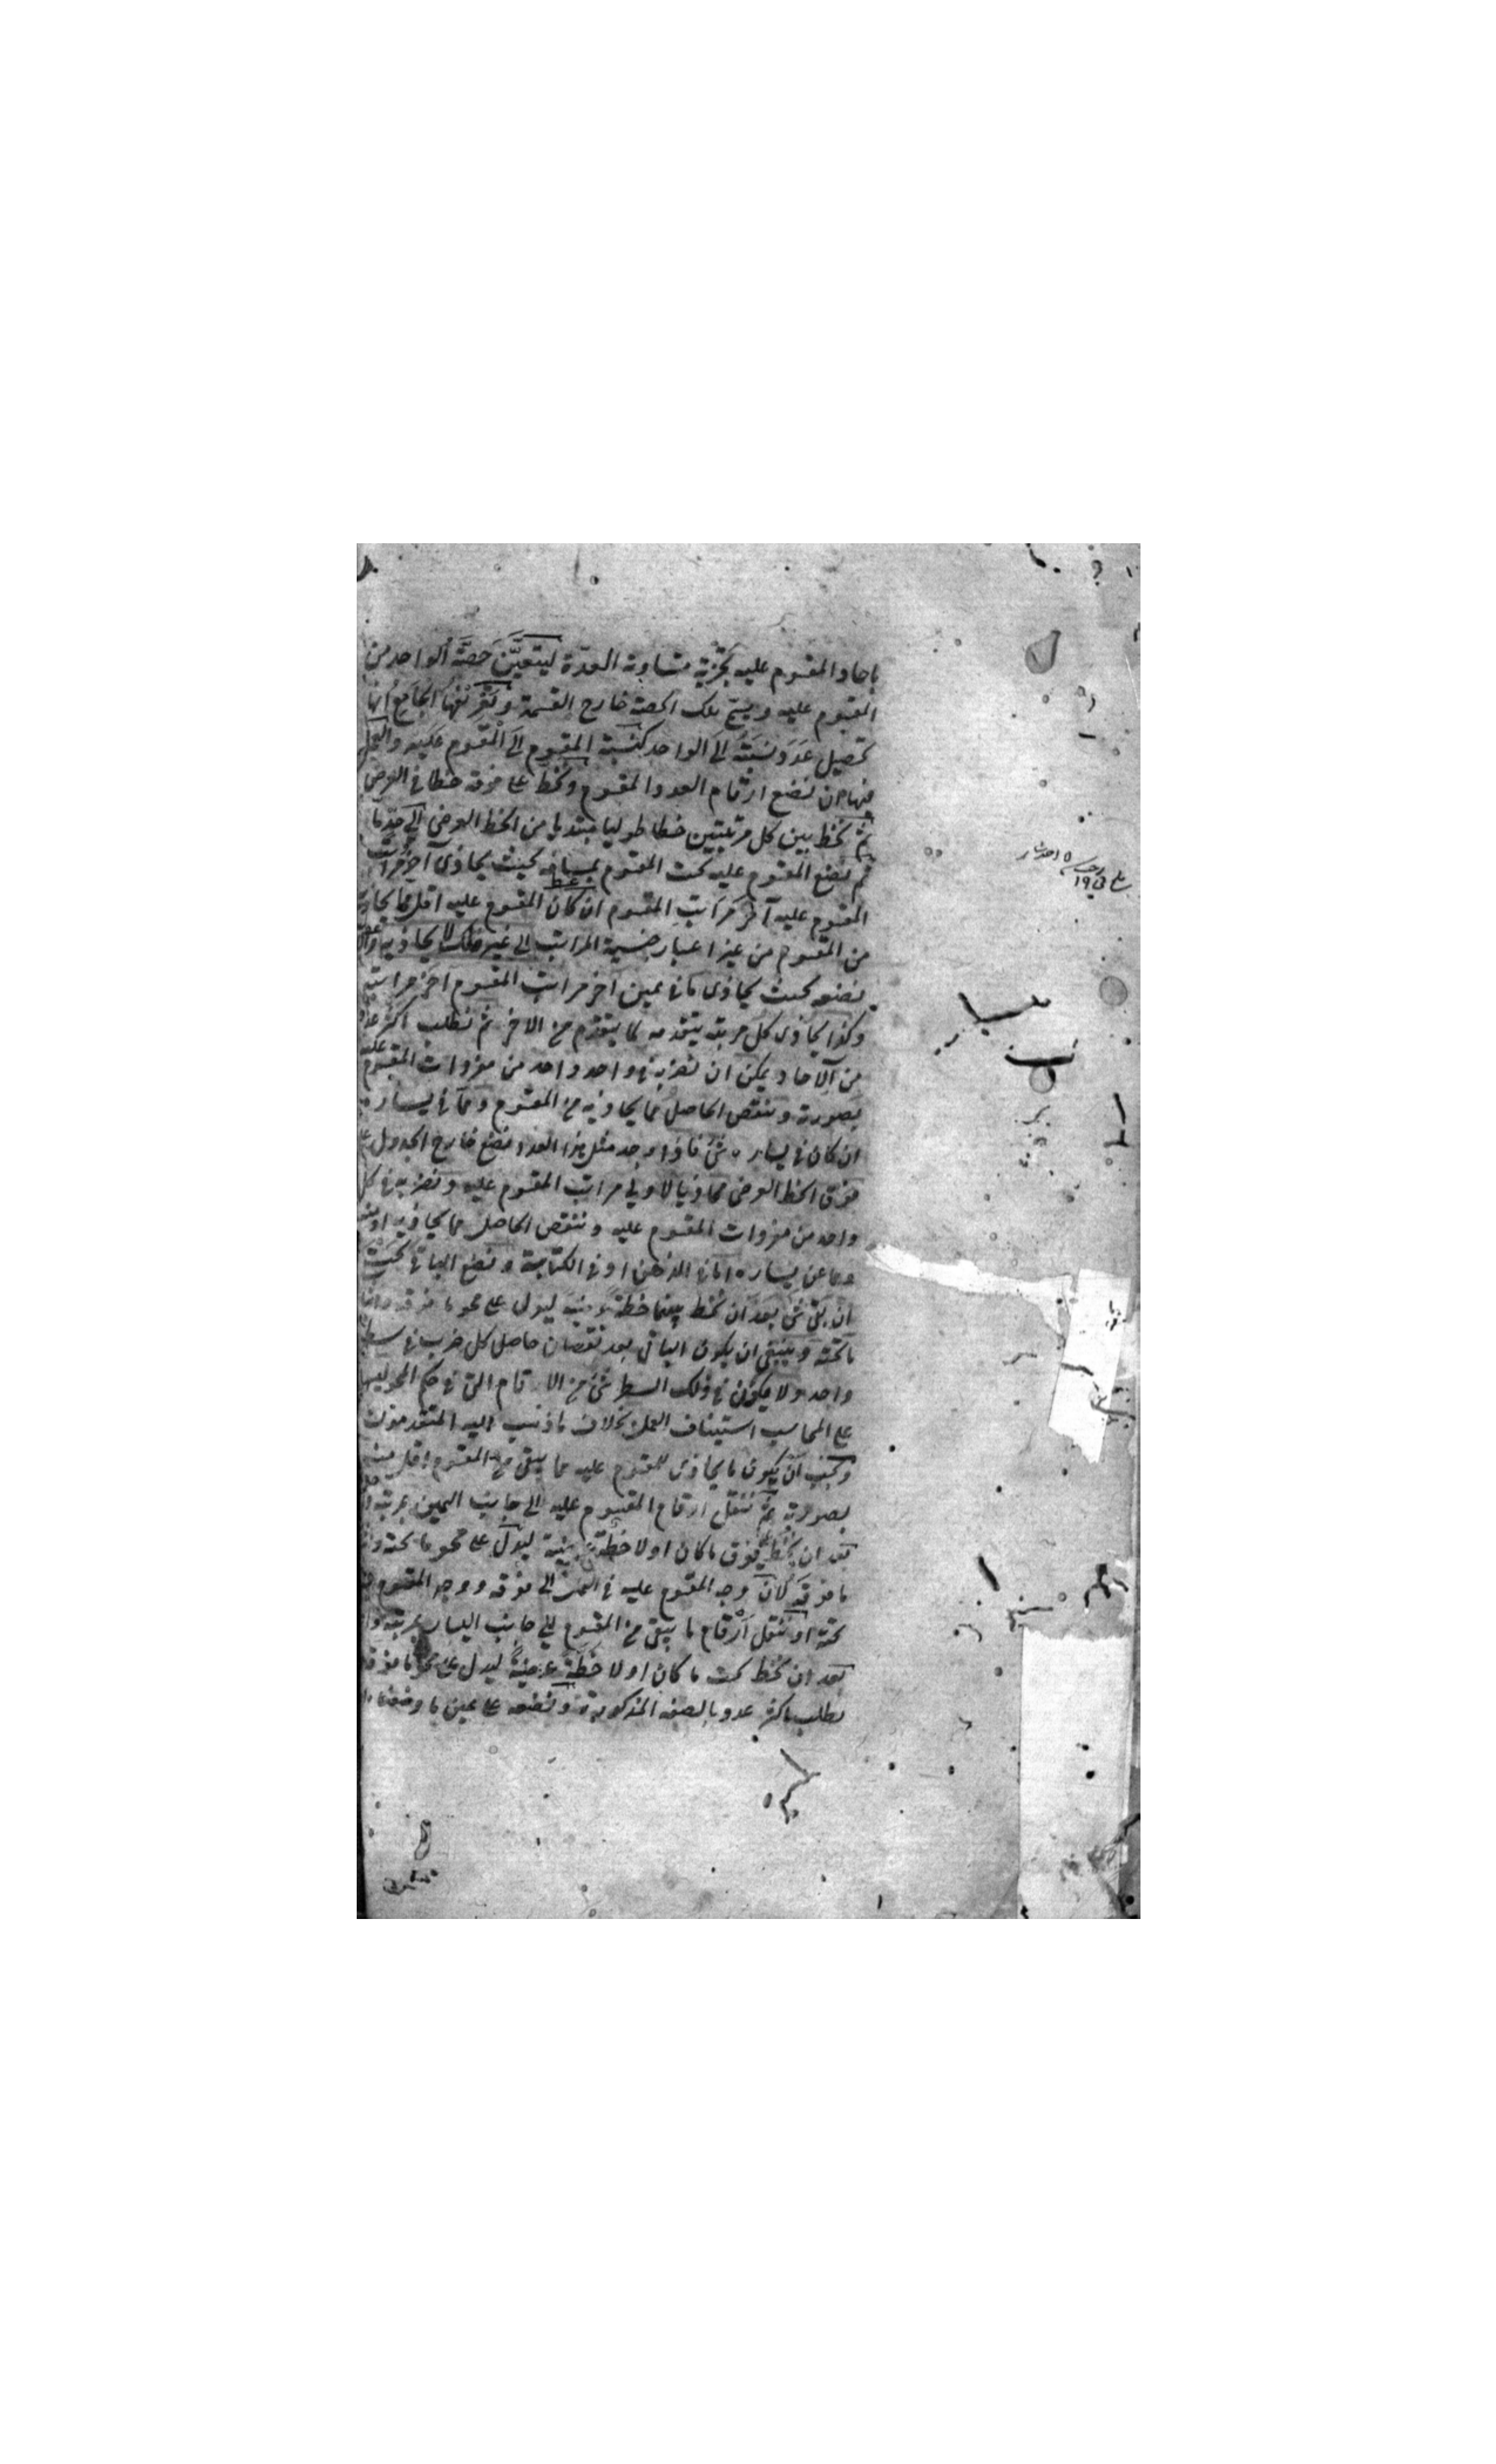 باحاد المقسوم عليه بتجزية متساوية العدة ليتعين حصة الواحد من
المقسوم عليه ويسمى تلك الحصة خارج القسمة وتعريفها الجامع انها
تحصيل عدد نسبته الى الواحد كنسبة المقسوم الى المقسوم عليه والعمل
فيها ان نضع ارقام العدد المقسوم ونخط على فوقه خطا في العرض
ثم نخط بين كل مرتبتين خطا طوليا مبتديا من الخط العرضى الى حد ما
ثم نضع المقسوم عليه تحت المقسوم بمسافة بحيث يحاذى آخر مراتب
المقسوم عليه آخر مراتب المقسوم ان كان المقسوم عليه اقل مما يحاذيه
من المقسوم من غير اعتبار ضمية المراتب الى غير ذلك لا يحاذيه والا
نضعه بحيث يحاذى ما في يمين آخر مراتب المقسوم اخر مراتبه
وكذا يحاذى كل مرتبة يتقدمه ما يتقدم من الاخر ثم نطلب اكثر عدد
من الآحاد يمكن ان نضربه في واحد واحد من مفردات المقسوم عليه
بصورته وننقص الحاصل مما يحاذيه من المقسوم ومما في يساره
ان كان في يساره شئ فاذا وجد مثل هذا العدد نضع خارج الجدول
فوق الخط العرضى محاذيا لاولى مراتب المقسوم عليه ونضربه في كل
واحد من مفردات المقسوم عليه وننقص الحاصل مما يحاذيه او منه
ومما عن يساره اما في الذهن او في الكتابة ونضع الباقى تحت
ان بقى شئ بعد ان نخط بينهما خطة عرضية ليدل على محو ما فوقه واثبات
ما تحته وينبغى ان يكون الباقى بعد نقصان حاصل كل ضرب في سطر
واحد ولا يكون في ذلك السطر شئ من الارقام التى في حكم المحو ليسهل
على المحاسب استيناف العمل بخلاف ما ذهب اليه المتقدمون
ويجب ان يكون ما يحاذى المقسوم عليه مما يبقى من المقسوم اقل منه
بصورته ثم ننقل ارقام المقسوم عليه الى جانب اليمين بمرتبة
بعد ان نخط فوق ما كان اولا خطة عرضية ليدل على محو ما تحته و
ما فوقه لان وجه المقسوم عليه في العمل الى فوقه ووجه المقسوم
تحته او ننقل ارقام ما يبقى من المقسوم الى جانب اليسار بمرتبة
بعد ان نخط تحت ما كان اولا خطة عرضية ليدل على محو ما فوقه
نطلب اكثر عدد بالصفة المذكورة ونضعه على يمين ما وضعناه